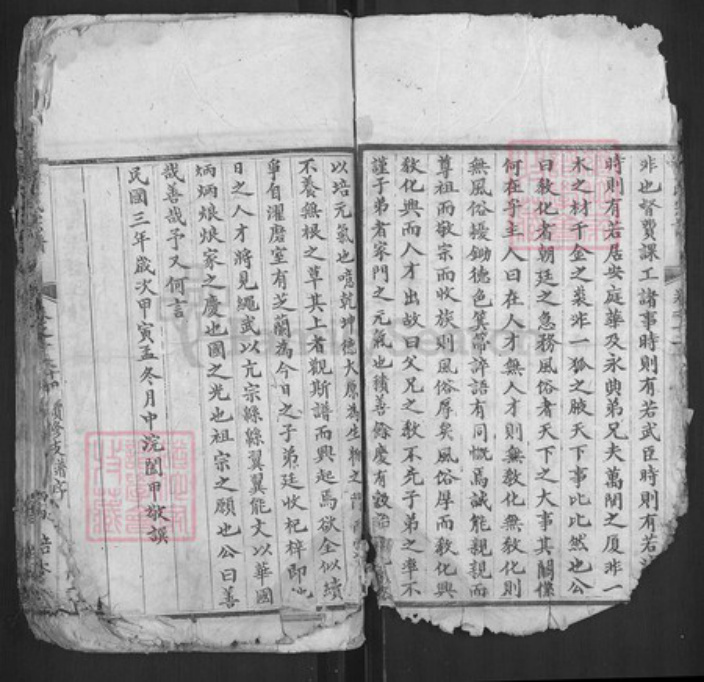 非也督費課工諸事時則有若武臣時則有若
時則有若居安庭華及永典弟兄夫萬間之厦非一
木之材千金之裘非一狐之腋天下事比比然也公
曰教化者朝廷之急務風俗者天下之大事其關係
何在乎主人曰在人才無人才則無教化無教化則
無風俗擾鋤德色箕箒誶語有同慨焉誠能親親而
尊祖而敬宗而收族則風俗厚矣風俗厚而教化興
教化興而人才出故曰父兄之教不先子弟之率不
謹子弟者家門之元氣也積善餘慶有穀
以培元氣也噫乾坤德大原為生物之
不養無根之草其上者觀斯譜而興起焉欲全似續
寧自濯磨室有芝蘭為今日之子弟廷收杞梓即他
日之人才將見繩武以亢宗緜緜翼翼能文以華國
炳炳烺烺家之慶也國之光也祖宗之願也公曰善
哉善哉予又何言
民國三年歲次甲寅孟冬月中浣闔甲敬譔
續修支譜序